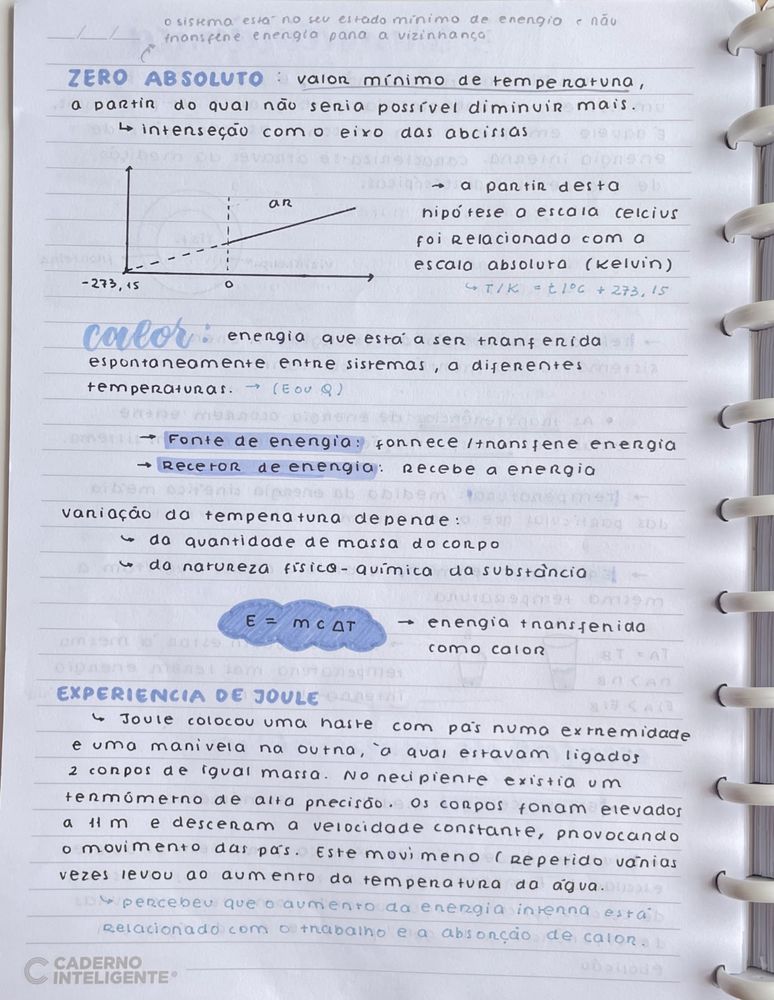 o sistema está no seu estado mínimo de energia e não
__/__/__ transfere energia para a vizinhança
ZERO ABSOLUTO : valor mínimo de temperatura,
a partir do qual não seria possível diminuir mais.
↳ interseção com o eixo das abcissas
ar
-273,15 0
→ a partir desta
hipótese a escala celcius
foi relacionado com a
escala absoluta (Kelvin)
↳ T/K = t/°C + 273,15
calor: energia que está a ser tranferida
espontaneamente entre sistemas, a diferentes
temperaturas. → (E ou Q)
→ Fonte de energia: fornece /transfere energia
→ Recetor de energia: recebe a energia
variação da temperatura depende:
↳ da quantidade de massa do corpo
↳ da natureza físico-química da substância
E = m c ΔT → energia transferida
como calor
EXPERIENCIA DE JOULE
↳ Joule colocou uma haste com pás numa extremidade
e uma manivela na outra, à qual estavam ligados
2 corpos de igual massa. No recipiente existia um
termómetro de alta precisão. Os corpos foram elevados
a 11 m e desceram a velocidade constante, provocando
o movimento das pás. Este movimeno (repetido várias
vezes levou ao aumento da temperatura da água.
↳ percebeu que o aumento da energia interna está
relacionado com o trabalho e a absorção de calor.
CADERNO
INTELIGENTE®